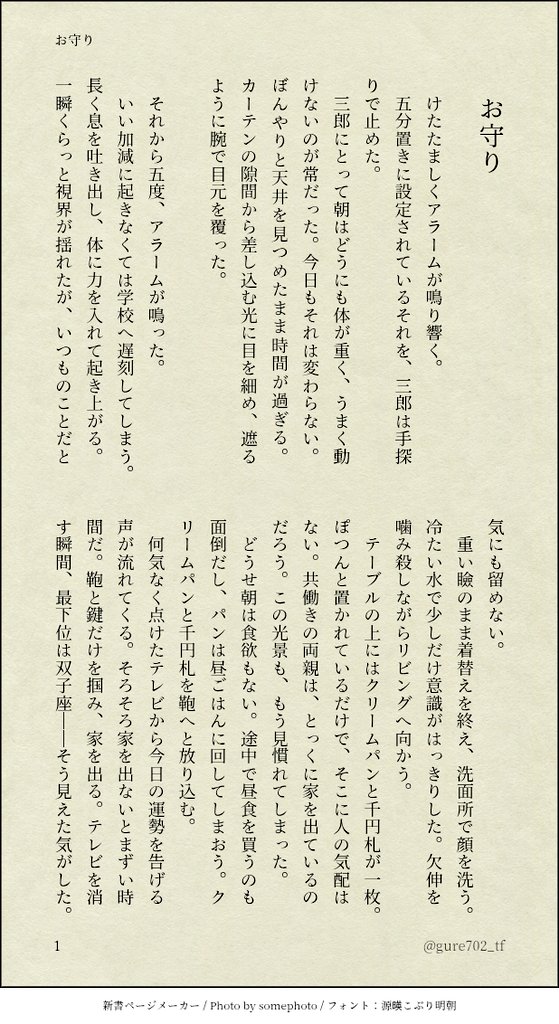 お守り
お守り
けたたましくアラームが鳴り響く。
五分置きに設定されているそれを、三郎は手探
りで止めた。
三郎にとって朝はどうにも体が重く、うまく動
けないのが常だった。今日もそれは変わらない。
ぼんやりと天井を見つめたまま時間が過ぎる。
カーテンの隙間から差し込む光に目を細め、遮る
ように腕で目元を覆った。
それから五度、アラームが鳴った。
いい加減に起きなくては学校へ遅刻してしまう。
長く息を吐き出し、体に力を入れて起き上がる。
一瞬くらっと視界が揺れたが、いつものことだと
気にも留めない。
重い瞼のまま着替えを終え、洗面所で顔を洗う。
冷たい水で少しだけ意識がはっきりした。欠伸を
噛み殺しながらリビングへ向かう。
テーブルの上にはクリームパンと千円札が一枚。
ぽつんと置かれているだけで、そこに人の気配は
ない。共働きの両親は、とっくに家を出ているの
だろう。この光景も、もう見慣れてしまった。
どうせ朝は食欲もない。途中で昼食を買うのも
面倒だし、パンは昼ごはんに回してしまおう。ク
リームパンと千円札を鞄へと放り込む。
何気なく点けたテレビから今日の運勢を告げる
声が流れてくる。そろそろ家を出ないとまずい時
間だ。鞄と鍵だけを掴み、家を出る。テレビを消
す瞬間、最下位は双子座――そう見えた気がした。
1
@gure702_tf
新書ページメーカー / Photo by somephoto / フォント：源暎こぶり明朝